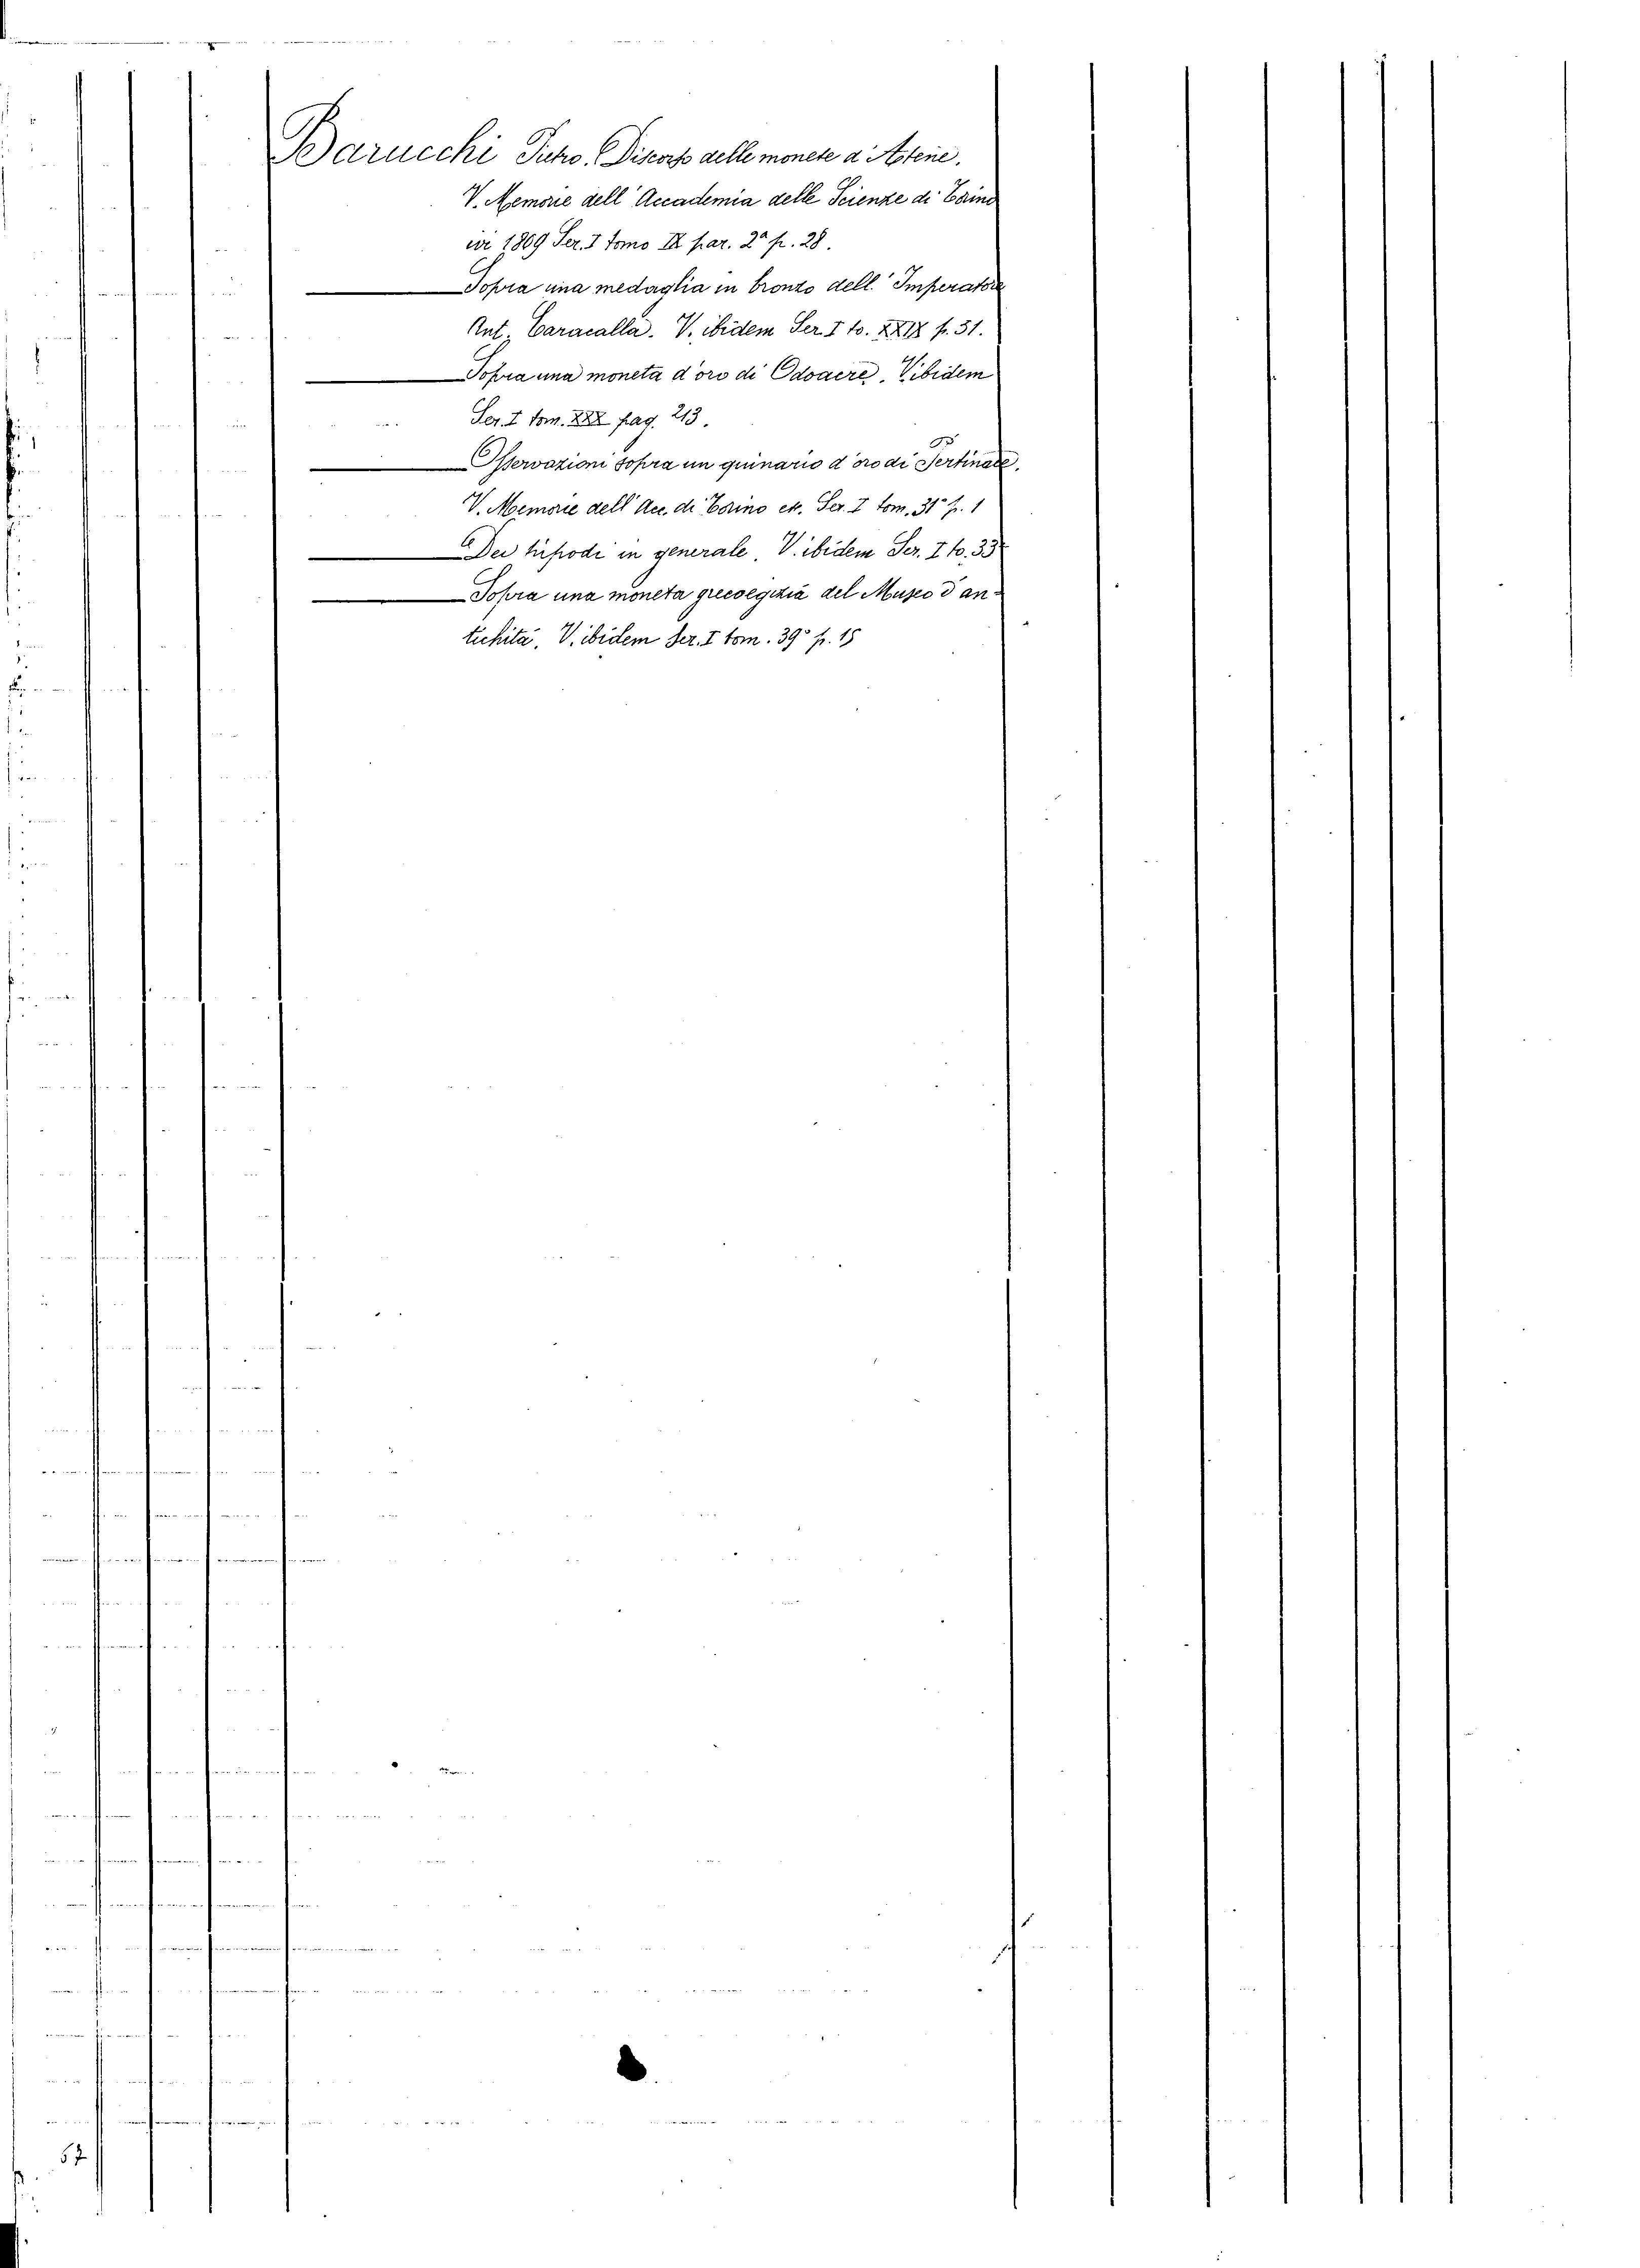 Barucchi Pietro. Discorso delle monete d'Atene.
V. Memorie dell'Accademia delle Scienze di Torino
in 1809 Ser. I tomo IX par. 2ª p. 28.
Sopra una medaglia in bronzo dell'Imperatore
Ant. Caracalla. V. ibidem Ser. I to. XXIX p. 31.
Sopra una moneta d'oro di Odoacre. V. ibidem
Ser. I tom. XXX pag. 213.
Osservazioni sopra un quinario d'oro di Pertinace.
V. Memorie dell'Acc. di Torino etc. Ser. I tom. 31° p. 1
Dei tripodi in generale. V. ibidem Ser. I to. 33
Sopra una moneta grecoegizia del Museo d'an-
tichità. V. ibidem Ser. I tom. 39° p. 15
57